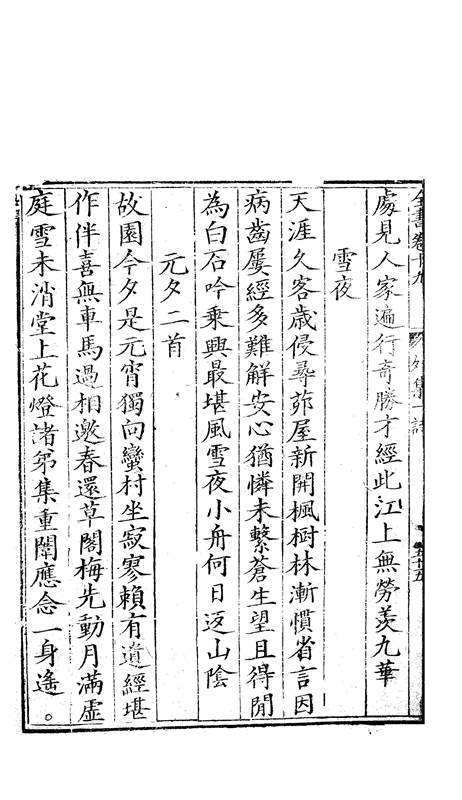 全書卷十九 外集一詩 五十五
處見人家遍行奇勝才經此江上無勞羨九華
雪夜
天涯久客歲侵尋茆屋新開楓樹林漸慣省言因
病齒屢經多難解安心猶憐未繫蒼生望且得閒
為白石吟乘興最堪風雪夜小舟何日返山陰
元夕二首
故園今夕是元宵獨向蠻村坐寂寥賴有遺經堪
作伴喜無車馬過相邀春還草閣梅先動月滿虛
庭雪未消堂上花燈諸弟集重闈應念一身遙。